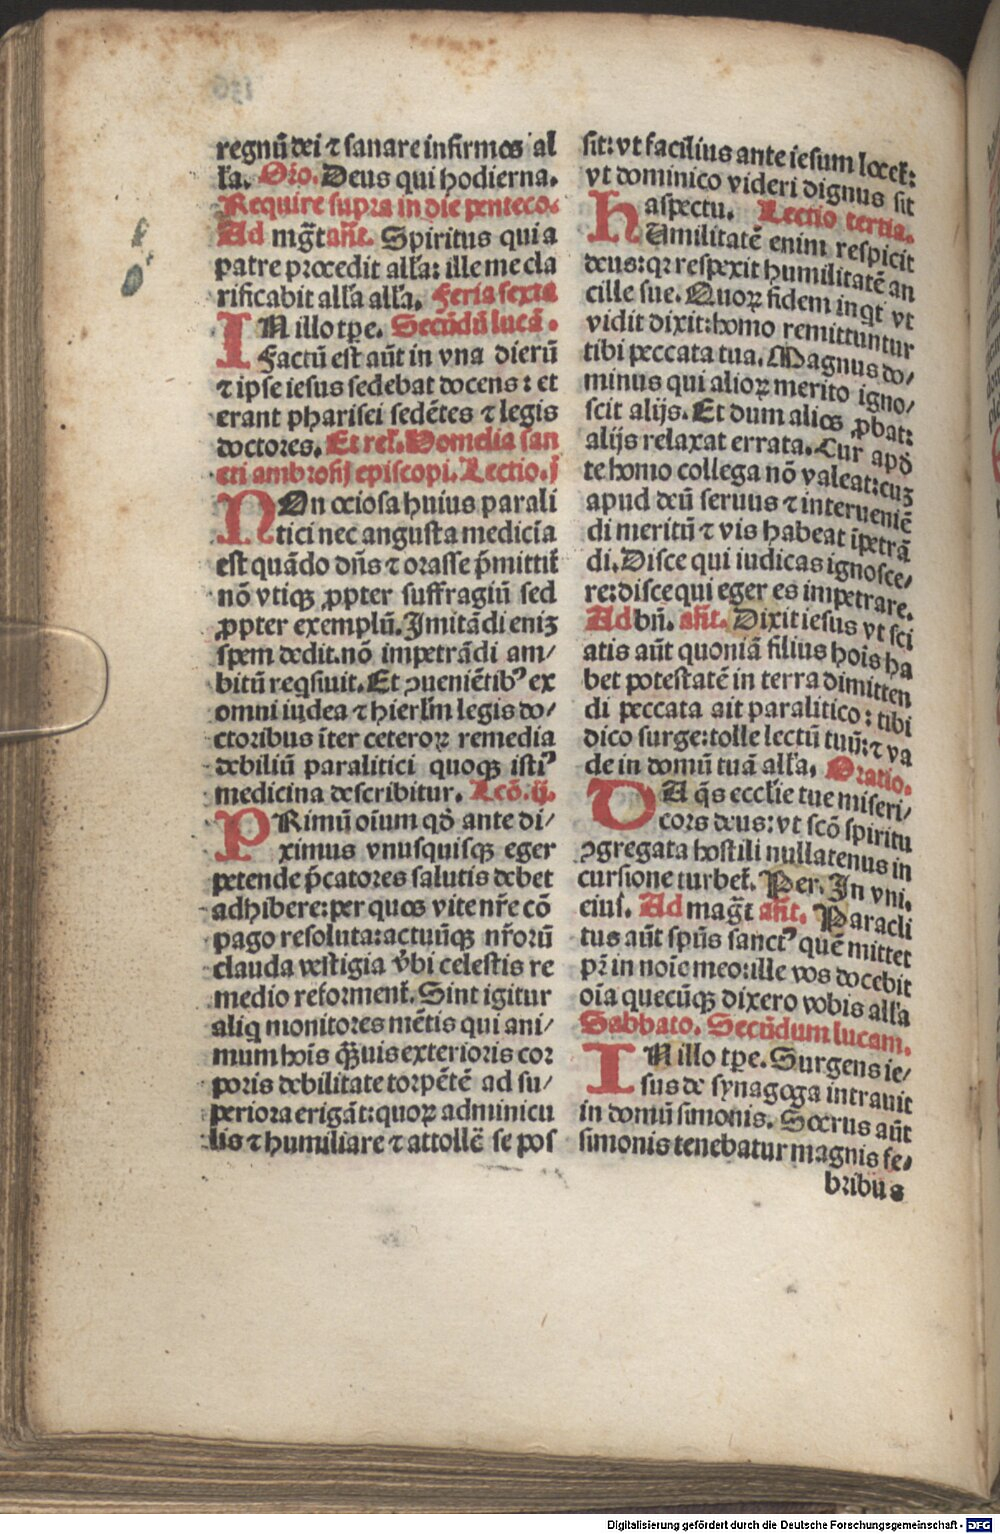 regnū dei ⁊ sanare infirmos al
l'a. Oro. Deus qui hodierna.
Require supra in die penteco.
Ad mgt̄ añt. Spiritus qui a
patre procedit all'a: ille me cla
rificabit all'a all'a. Feria sexta
IN illo tp̄e. Secūdū lucā.
Factū est aūt in vna dierū
⁊ ipse iesus sedebat docens: et
erant pharisei sedētes ⁊ legis
doctores. Et rel̄. Homelia san
cti ambrosij episcopi. Lectio.j
NOn ociosa huius parali
tici nec angusta medicīa
est quādo dn̄s ⁊ orasse p̄mittit̄
nō vtiqꝫ ꝓpter suffragiū sed
ꝓpter exemplū. Imitādi enīꝫ
spem dedit. nō impetrādi am/
bitū reqsiuit. Et ꝯueniētibꝰ ex
omni iudea ⁊ hierl'm legis do/
ctoribus īter ceteroꝝ remedia
debiliū paralitici quoqꝫ istiꝰ
medicina describitur. Lcō.ij.
PRimū oīum qđ ante di/
ximus vnusquisqꝫ eger
petende p̄catores salutis debet
adhibere: per quos vite nr̄e cō
pago resoluta: actuūqꝫ nr̄orū
clauda vestigia v̄bi celestis re
medio reforment̄. Sint igitur
aliq monitores mētis qui ani/
mum hoīs q̄ꝫuis exterioris cor
poris debilitate torpētē ad su/
periora erigāt: quoꝝ adminicu
lis ⁊ humiliare ⁊ attollē se pos
sit: vt facilius ante iesum locet̄:
vt dominico videri dignus sit
aspectu. Lectio tertia.
HUmilitatē enim respicit
deus: qꝛ respexit humilitatē an
cille sue. Quoꝝ fidem inqt vt
vidit dixit: homo remittuntur
tibi peccata tua. Magnus do/
minus qui alioꝝ merito igno/
scit alijs. Et dum alios ꝓbat:
alijs relaxat errata. Cur apđ
te homo collega nō valeat: cuꝫ
apud deū seruus ⁊ interueniē
di meritū ⁊ vis habeat īpetrā
di. Disce qui iudicas ignosce/
re: disce qui eger es impetrare.
Ad bn̄. añt. Dixit iesus vt sci
atis aūt quoniā filius hoīs ha
bet potestatē in terra dimitten
di peccata ait paralitico: tibi
dico surge: tolle lectū tuū: ⁊ va
de in domū tuā all'a. Oratio.
DA q̄s eccl'ie tue miseri/
cors deus: vt scō spiritu
ꝯgregata hostili nullatenus in
cursione turbet̄. Per. In vni.
eius. Ad magt̄ añt. Paracli
tus aūt spūs sanctꝰ quē mittet
pr̄ in noīe meo: ille vos docebit
oīa quecūqꝫ dixero vobis all'a
Sabbato. Secūdum lucam.
IN illo tp̄e. Surgens ie/
sus de synagoga intrauit
in domū simonis. Socrus aūt
simonis tenebatur magnis fe/
bribus
Digitalisierung gefördert durch die Deutsche Forschungsgemeinschaft - DFG